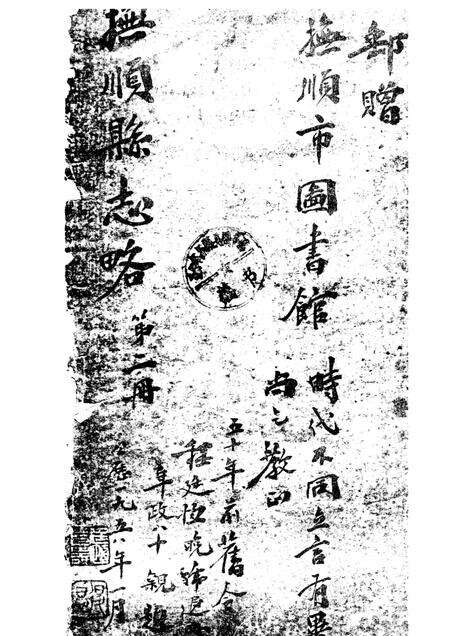 郵贈
撫順市圖書館
時代不同立言有異
尚乞教正
五十年前舊令
程廷恒晚號
阜政八十親題
第二冊
撫順縣志略
歷一九五八年一月